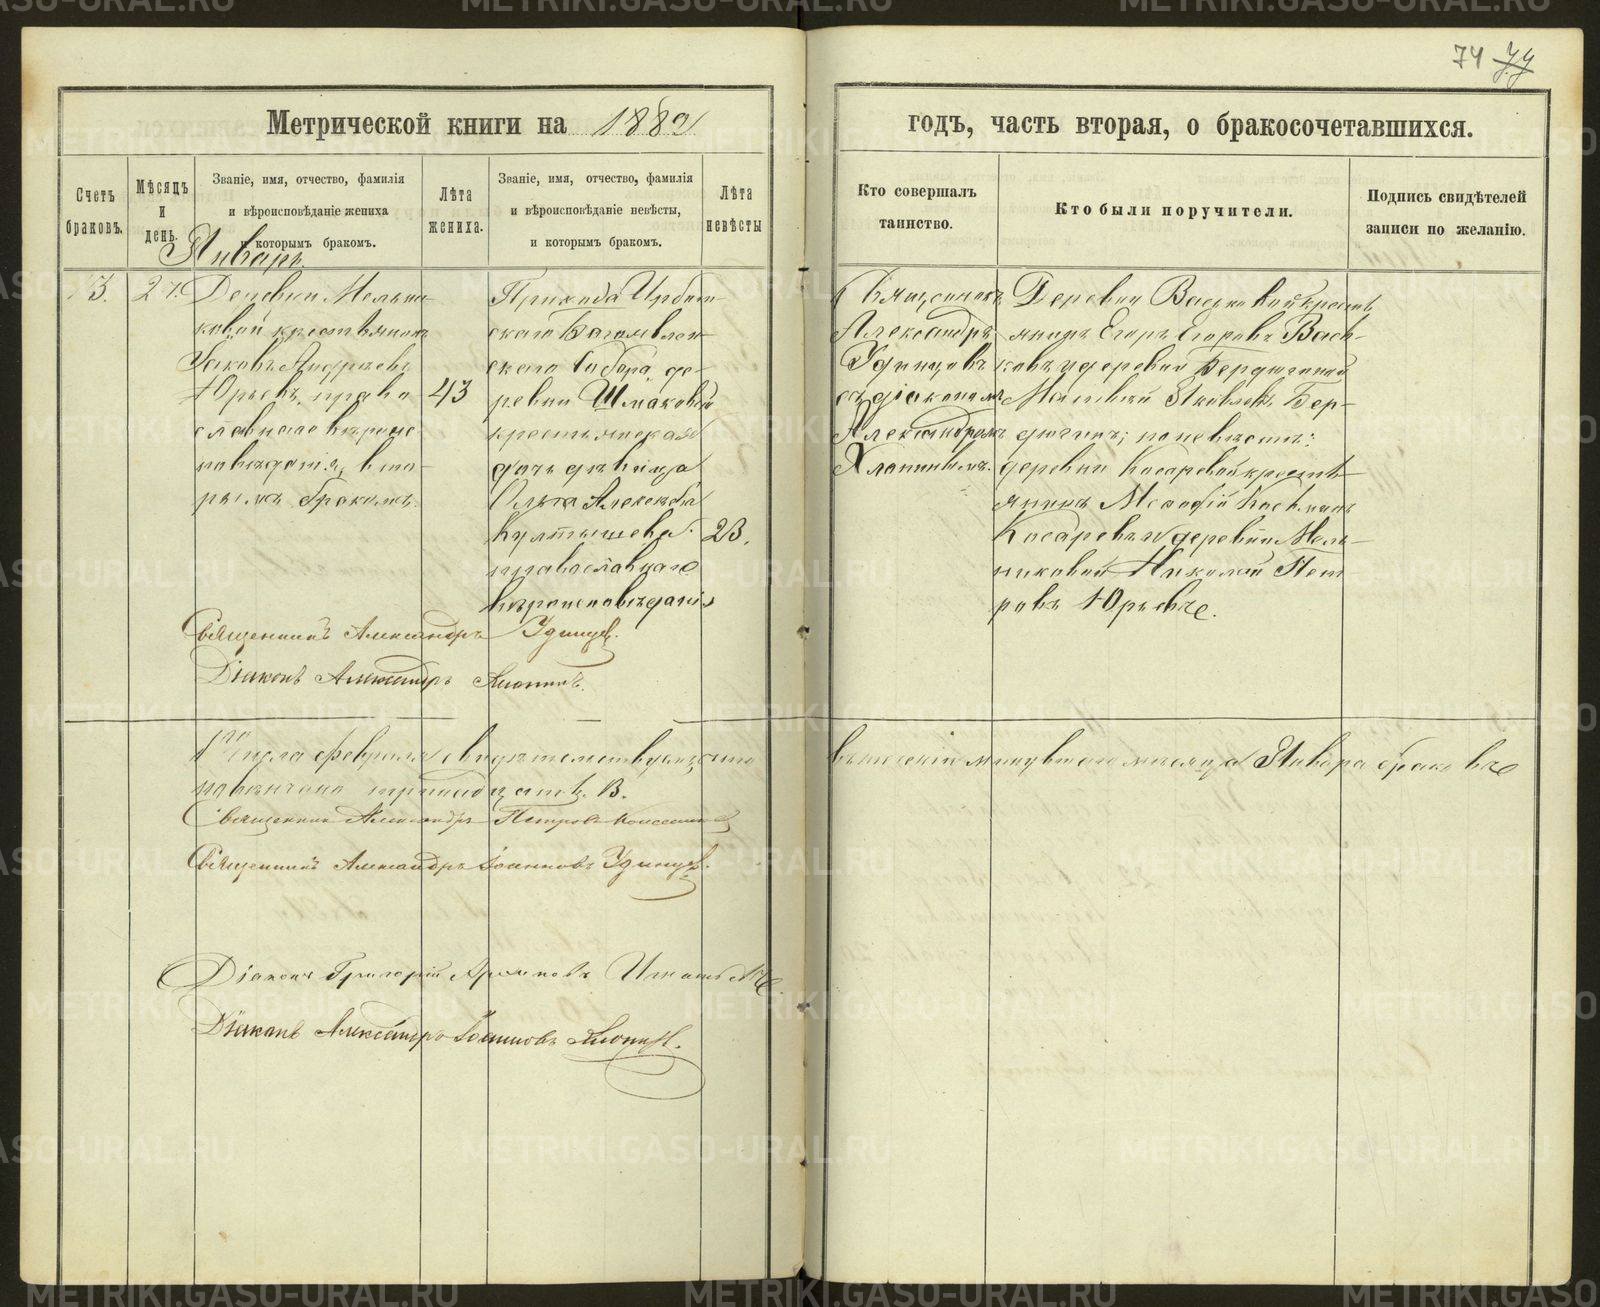 74 77
Метрической книги на 1882
годъ, часть вторая, о бракосочетавшихся.
Счетъ браковъ.
Мѣсяцъ и день.
Званіе, имя, отчество, фамилія и вѣроисповѣданіе жениха и которымъ бракомъ.
Лѣта жениха.
Званіе, имя, отчество, фамилія и вѣроисповѣданіе невѣсты, и которымъ бракомъ.
Лѣта невѣсты
Кто совершалъ таинство.
Кто были поручители.
Подпись свидѣтелей записи по желанію.
Январь
13.
27.
Деревни Мельни-
ковой крестьянинъ
Іаковъ Андреевъ
Юрьевъ, право
славнаго вѣроис-
повѣданія, вто-
рымъ бракомъ.
43
Прихода Ирбит-
скаго Богоявлен-
скаго Собора де-
ревни Шмаковой
крестьянская
дочь дѣвица
Ольга Алексѣева
Култышева
православнаго
вѣроисповѣданія
23.
Священникъ
Александръ
Удинцовъ
съ діакономъ
Александромъ
Хлопинымъ.
Деревни Васьковой кресть
янинъ Егоръ Егоровъ Вась-
ковъ и деревни Бердюгиной
Яковлевъ Бер-
дюгинъ; по невѣстѣ:
деревни Косаревой кресть
янинъ Меѳодій
Косаревъ и деревни Мель-
никовой Николай Пет
ровъ Юрьевъ.
Священникъ Александръ Удинцов.
Діаконъ Александръ Хлопинъ.
1го числа февраля свидѣтельствуемъ, что въ теченіи минувшаго мѣсяца Января браковъ
повѣнчано тринадцать. 13.
Священникъ Александръ Петровъ
Священникъ Александръ Іоанновъ Удинцов.
Діаконъ Григорій
Діаконъ Александръ Іоанновъ Хлопин.
METRIKI.GASO-URAL.RU